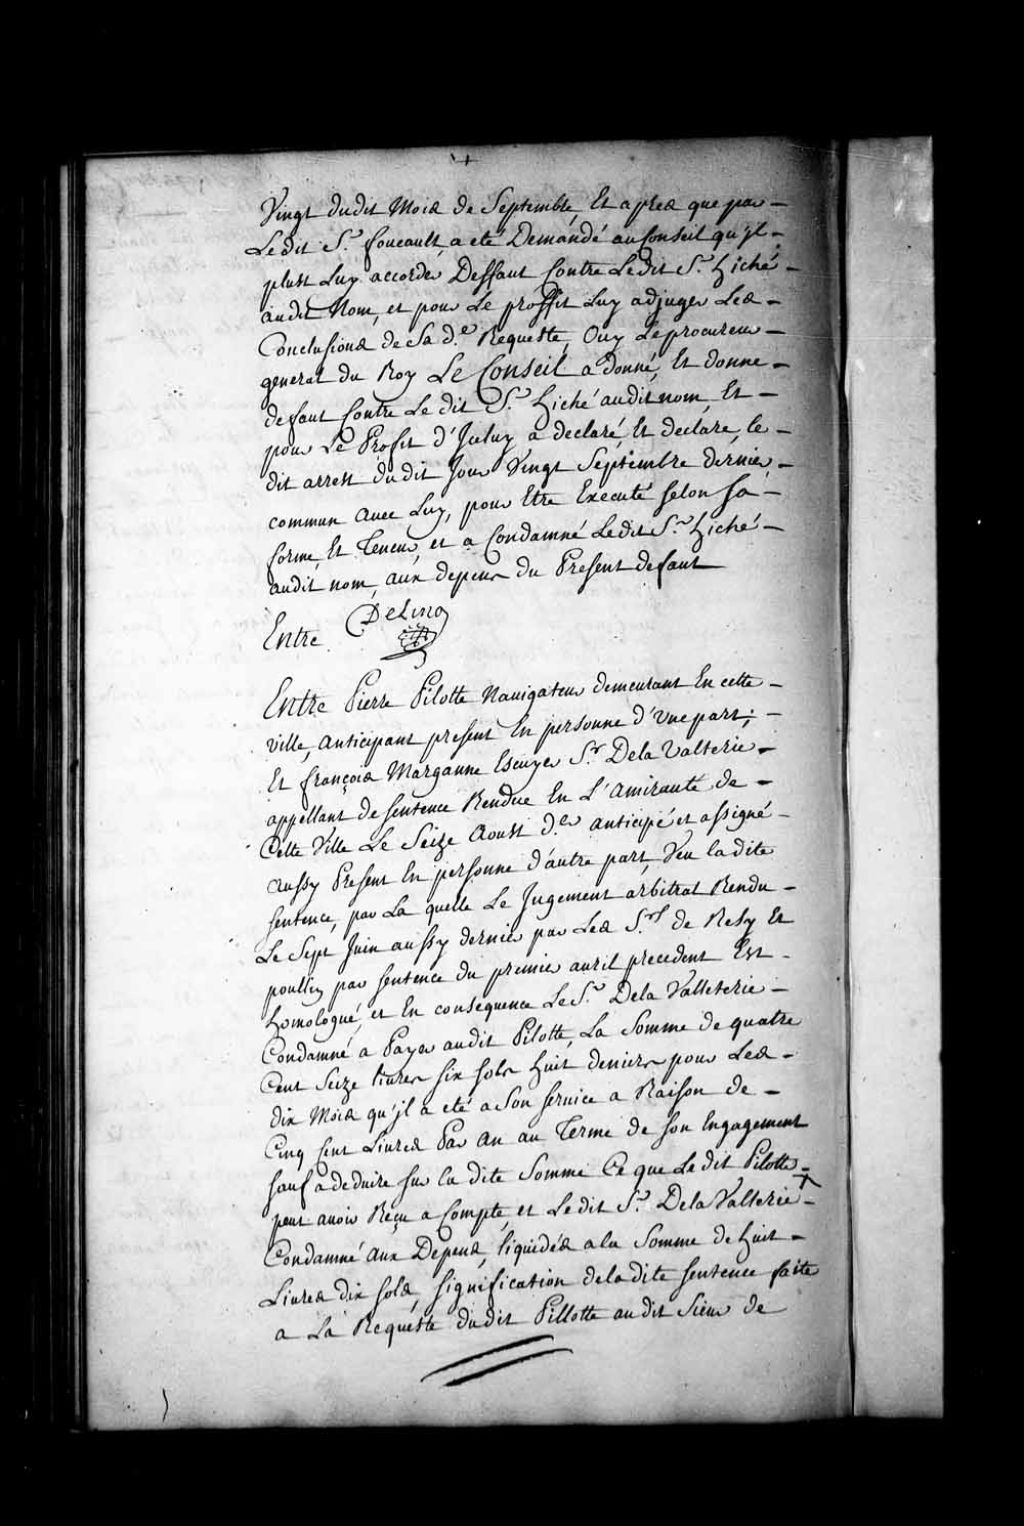 Vingt dudit Mois de Septembre, Et apres que par –
Ledit S.r foucault, a eté Demandé au Conseil qu'jl –
plust Luy accorder Deffaut Contre Ledit S.r hiché –
audit Nom, et pour Le proffit Luy adjuger Les –
Conclusions de Sa d.e Requeste, Ouy Le procureur –
general du Roy Le Conseil a donné, Et donne –
defaut Contre Le dit S.r hiché audit nom, Et –
pour Le Profit d'Jceluy a declaré, Et declare, le –
dit arrest dudit Jour Vingt Septembre dernier, –
commun avec Luy, pour Etre Executé selon sa –
forme, Et Teneur, et a Condamné Ledit S.r hiché –
audit nom, aux depens du Present defaut
Entre Delino
Entre Pierre Pilotte Navigateur demeurant En cette –
ville, anticipant present En personne d'vne part; –
Et françois Marganne Escuyer S.r Dela Valterie –
appellant de sentence Rendue En L'amirauté de –
Cette Ville Le Seize Aoust d.er anticipé et assigné –
aussy Present En personne d'autre part, Veu ladite
sentence, par La quelle Le Jugement arbitral Rendu –
Le Sept Juin aussy dernier par Les S.rs de Resy Et
poullin par sentence du premier avril precedent Est –
homologué, et En consequence Le S.r Dela Valleterie –
Condamné a Payer audit Pilotte, La Somme de quatre
Cent Seize livres six sols huit deniers pour Les –
dix Mois qu'jl a eté a Son service a Raison de –
Cinq Cent Livres Par An au Terme de son Engagement
sauf a deduire sur la dite Somme Ce que Le dit Pilotte –
peut avoir Reçu a Compte, et Ledit S.r Dela Valterie –
Condamné aux Depens, liquidés a la Somme de huit –
Livres dix sols, signification deladite sentence faite
a La Requeste dudit Pillotte audit Sieur de